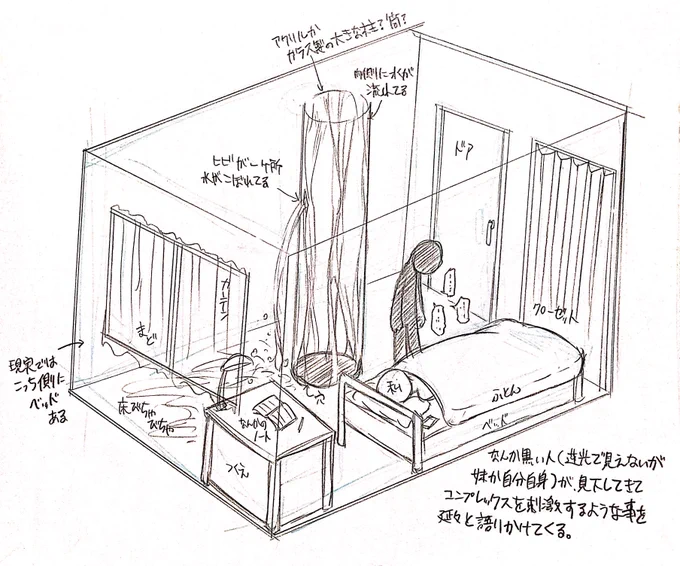 アクリルか
ガラス製の大きな柱？筒？
内側に水が
流れてる
ヒビが一ヶ所
水がこぼれてる
ドア
クローゼット
カーテン
まど
現実では
こっち側に
ベッド
ある
床びちゃ
びちゃ
穴
なんかの
ノート
つくえ
私
ふとん
ベッド
なんか黒い人(逆光で見えないが
妹か自分自身)が見下してきて
コンプレックスを刺激するような事を
延々と語りかけてくる。